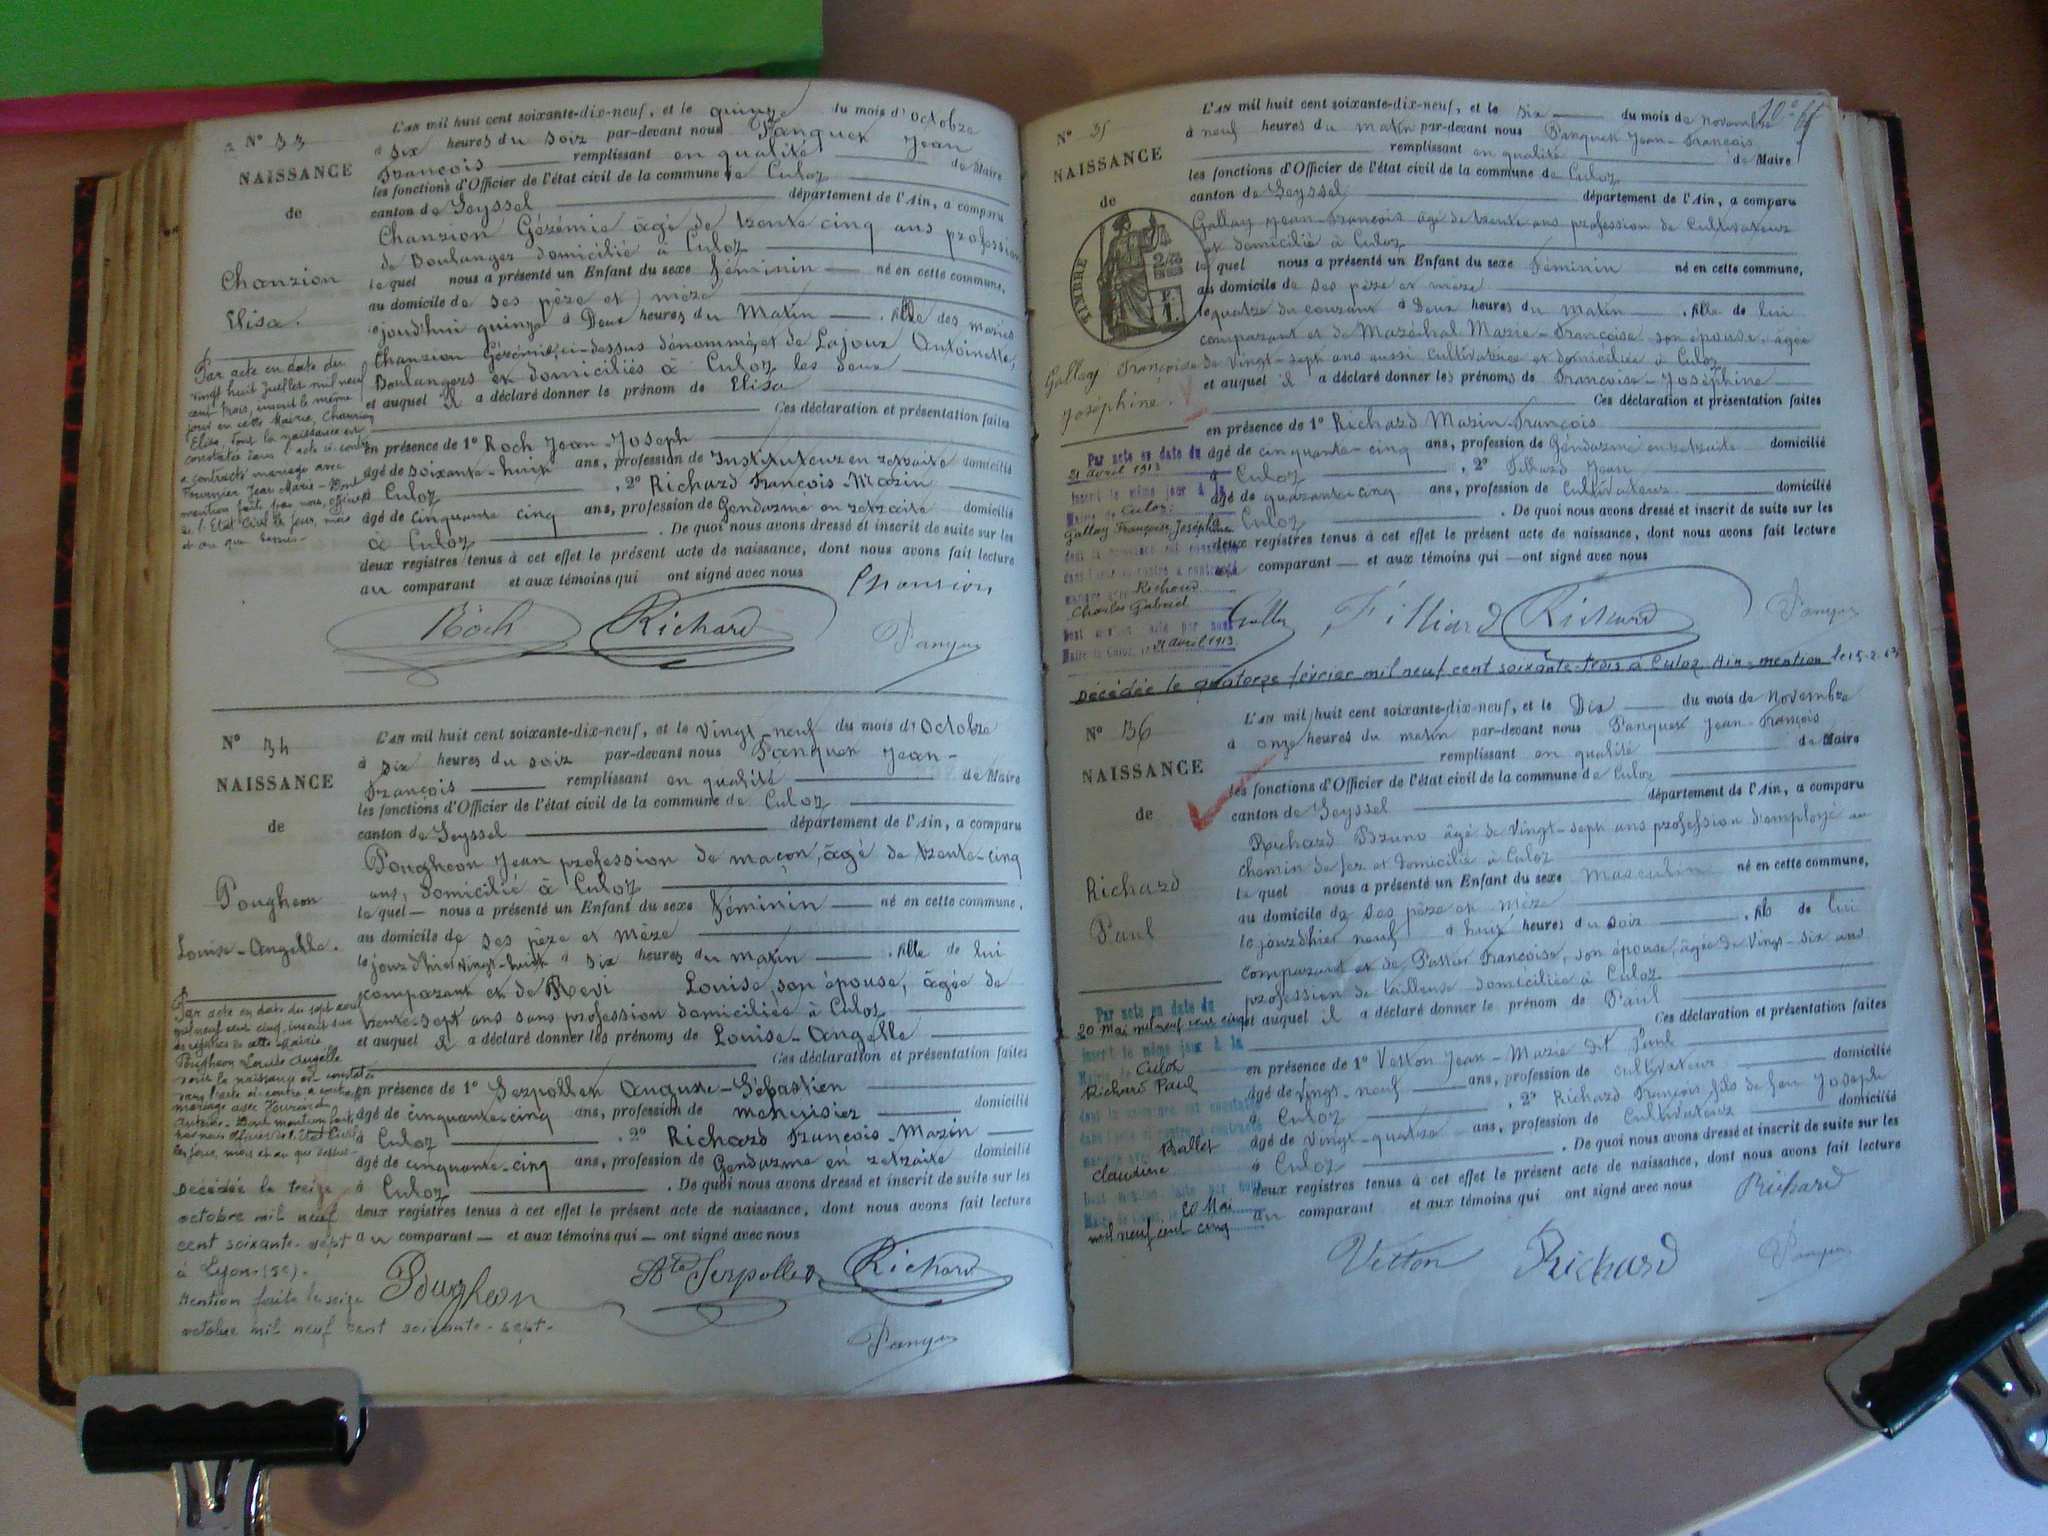 N° 33
NAISSANCE
de
Chanzion
Elisa.
Par acte en date du
vingt huit Juillet mil neuf
cent trois, inscrit le même
jour en cette Mairie, Chanzion
Elisa, dont la naissance est
constatée dans l'acte ci-contre
a contracté mariage avec
Fournier Jean Marie - Dont
mention faite par nous, officier
de l'Etat Civil les jour, mois
et an que dessus.-
L'AN mil huit cent soixante-dix-neuf, et le quinze du mois d'Octobre
à six heures du soir par-devant nous Panquet Jean
François remplissant en qualité de Maire
les fonctions d'Officier de l'état civil de la commune de Culoz
canton de Seyssel département de l'Ain, a comparu
Chanzion Gérémie âgé de trente cinq ans profession
de Boulanger domicilié à Culoz
lequel nous a présenté un Enfant du sexe féminin né en cette commune,
au domicile de ses père et mère
jourd'hui quinze à Deux heures du Matin , fille des mariés
Chanzion Gérémie, ci-dessus dénommé, et de Lajoux Antoinette,
Boulangers et domiciliés à Culoz les deux
et auquel il a déclaré donner le prénom de Elisa
Ces déclaration et présentation faites
en présence de 1° Roch Jean-Joseph
âgé de soixante-huit ans, profession de Instituteur en retraite domicilié
à Culoz , 2° Richard François-Marin
âgé de cinquante cinq ans, profession de Gendarme en retraite domicilié
à Culoz . De quoi nous avons dressé et inscrit de suite sur les
deux registres tenus à cet effet le présent acte de naissance, dont nous avons fait lecture
au comparant et aux témoins qui ont signé avec nous
Chansion
Roch Richard Panquet
N° 34
NAISSANCE
de
Pougheon
Louise-Angelle.
Par acte en date du sept aout
mil neuf cent cinq, inscrit sur
les registres de cette Mairie
Pougheon Louise Angelle
dont la naissance est constatée
dans l'acte ci-contre, a contracté
mariage avec
Antoine - Dont mention faite
par nous Officier de l'Etat Civil
les jour, mois et an que dessus.-
Décédée le treize
octobre mil neuf
cent soixante-sept
à Lyon (5e).
Mention faite le seize
octobre mil neuf cent soixante-sept.
L'AN mil huit cent soixante-dix-neuf, et le vingt-neuf du mois d'Octobre
à six heures du soir par-devant nous Panquet Jean-
François remplissant en qualité de Maire
les fonctions d'Officier de l'état civil de la commune de Culoz
canton de Seyssel département de l'Ain, a comparu
Pougheon Jean profession de maçon, âgé de trente-cinq
ans, domicilié à Culoz
lequel — nous a présenté un Enfant du sexe féminin — né en cette commune,
au domicile de ses père et mère
le jour d'hier vingt-huit à six heures du matin , fille de lui
comparant et de Revi Louise, son épouse, âgée de
trente-sept ans sans profession domiciliés à Culoz
et auquel il a déclaré donner les prénoms de Louise-Angelle
Ces déclaration et présentation faites
en présence de 1° Serpollet Auguste-Sébastien
âgé de cinquante-cinq ans, profession de menuisier domicilié
à Culoz , 2° Richard François-Marin
âgé de cinquante-cinq ans, profession de Gendarme en retraite domicilié
à Culoz . De quoi nous avons dressé et inscrit de suite sur les
deux registres tenus à cet effet le présent acte de naissance, dont nous avons fait lecture
au comparant — et aux témoins qui — ont signé avec nous
Pougheon Ate Serpollet Richard
Panquet
N° 35
NAISSANCE
de
TIMBRE
Gallay Françoise
Joséphine.
Par acte en date du
21 avril 1913
inscrit le même jour à la
Mairie de Culoz
Gallay Françoise Joséphine
dont la naissance est constatée
dans l'acte ci-contre a contracté
mariage avec Richard
Charles Gabriel
Dont mention faite par nous
Maire de Culoz, le 21 avril 1913
L'AN mil huit cent soixante-dix-neuf, et le six du mois de novembre
à neuf heures du matin par-devant nous Panquet Jean-François
remplissant en qualité de Maire
les fonctions d'Officier de l'état civil de la commune de Culoz
canton de Seyssel département de l'Ain, a comparu
Gallay Jean-François âgé de trente ans profession de Cultivateur
et domicilié à Culoz
lequel nous a présenté un Enfant du sexe féminin né en cette commune,
au domicile de ses père et mère
le quatre du courant à Deux heures du matin , fille de lui
comparant et de Maréchal Marie-Françoise son épouse, âgée
de vingt-sept ans aussi cultivatrice et domiciliée à Culoz
et auquel il a déclaré donner les prénoms de Françoise-Joséphine
Ces déclaration et présentation faites
en présence de 1° Richard Marin-François
âgé de cinquante-cinq ans, profession de Gendarme en retraite domicilié
à Culoz , 2° Filliard Jean
âgé de quarante-cinq ans, profession de Cultivateur domicilié
à Culoz . De quoi nous avons dressé et inscrit de suite sur les
deux registres tenus à cet effet le présent acte de naissance, dont nous avons fait lecture
au comparant — et aux témoins qui — ont signé avec nous
Gallay Filliard Richard Panquet
Décédée le quatorze février mil neuf cent soixante trois à Culoz Ain - mention le 15-2-63
N° 36
NAISSANCE
de
Richard
Paul
Par acte en date du
20 Mai mil neuf cent cinq
inscrit le même jour à la
Mairie de Culoz
Richard Paul
dont la naissance est constatée
dans l'acte ci-contre a contracté
mariage avec Ballet
Claudine
Dont mention faite par nous
Maire de Culoz, le 20 Mai
mil neuf cent cinq
L'AN mil huit cent soixante-dix-neuf, et le Dix du mois de novembre
à onze heures du matin par-devant nous Panquet Jean-François
remplissant en qualité de Maire
les fonctions d'Officier de l'état civil de la commune de Culoz
canton de Seyssel département de l'Ain, a comparu
Richard Bruno âgé de vingt-sept ans profession d'employé au
chemin de fer et domicilié à Culoz
lequel nous a présenté un Enfant du sexe masculin né en cette commune,
au domicile de ses père et mère
le jour d'hier neuf à huit heures du soir , fils de lui
comparant et de Françoise, son épouse, âgée de vingt-six ans
profession de tailleuse domiciliée à Culoz
et auquel il a déclaré donner le prénom de Paul
Ces déclaration et présentation faites
en présence de 1° Vetton Jean-Marie dit Paul
âgé de vingt-neuf ans, profession de cultivateur domicilié
à Culoz , 2° Richard François fils de feu Joseph
âgé de vingt-quatre ans, profession de Cultivateur domicilié
à Culoz . De quoi nous avons dressé et inscrit de suite sur les
deux registres tenus à cet effet le présent acte de naissance, dont nous avons fait lecture
au comparant et aux témoins qui ont signé avec nous Richard
Vetton Richard Panquet